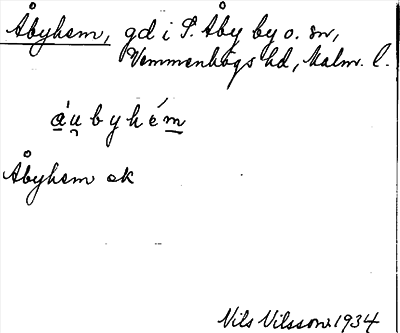 Åbyhem, gd i S. Åby by o. sn,
Vemmenhögs hd, Malm. l.
áu̯byhém
Åbyhem ek
Nils Nilsson 1934